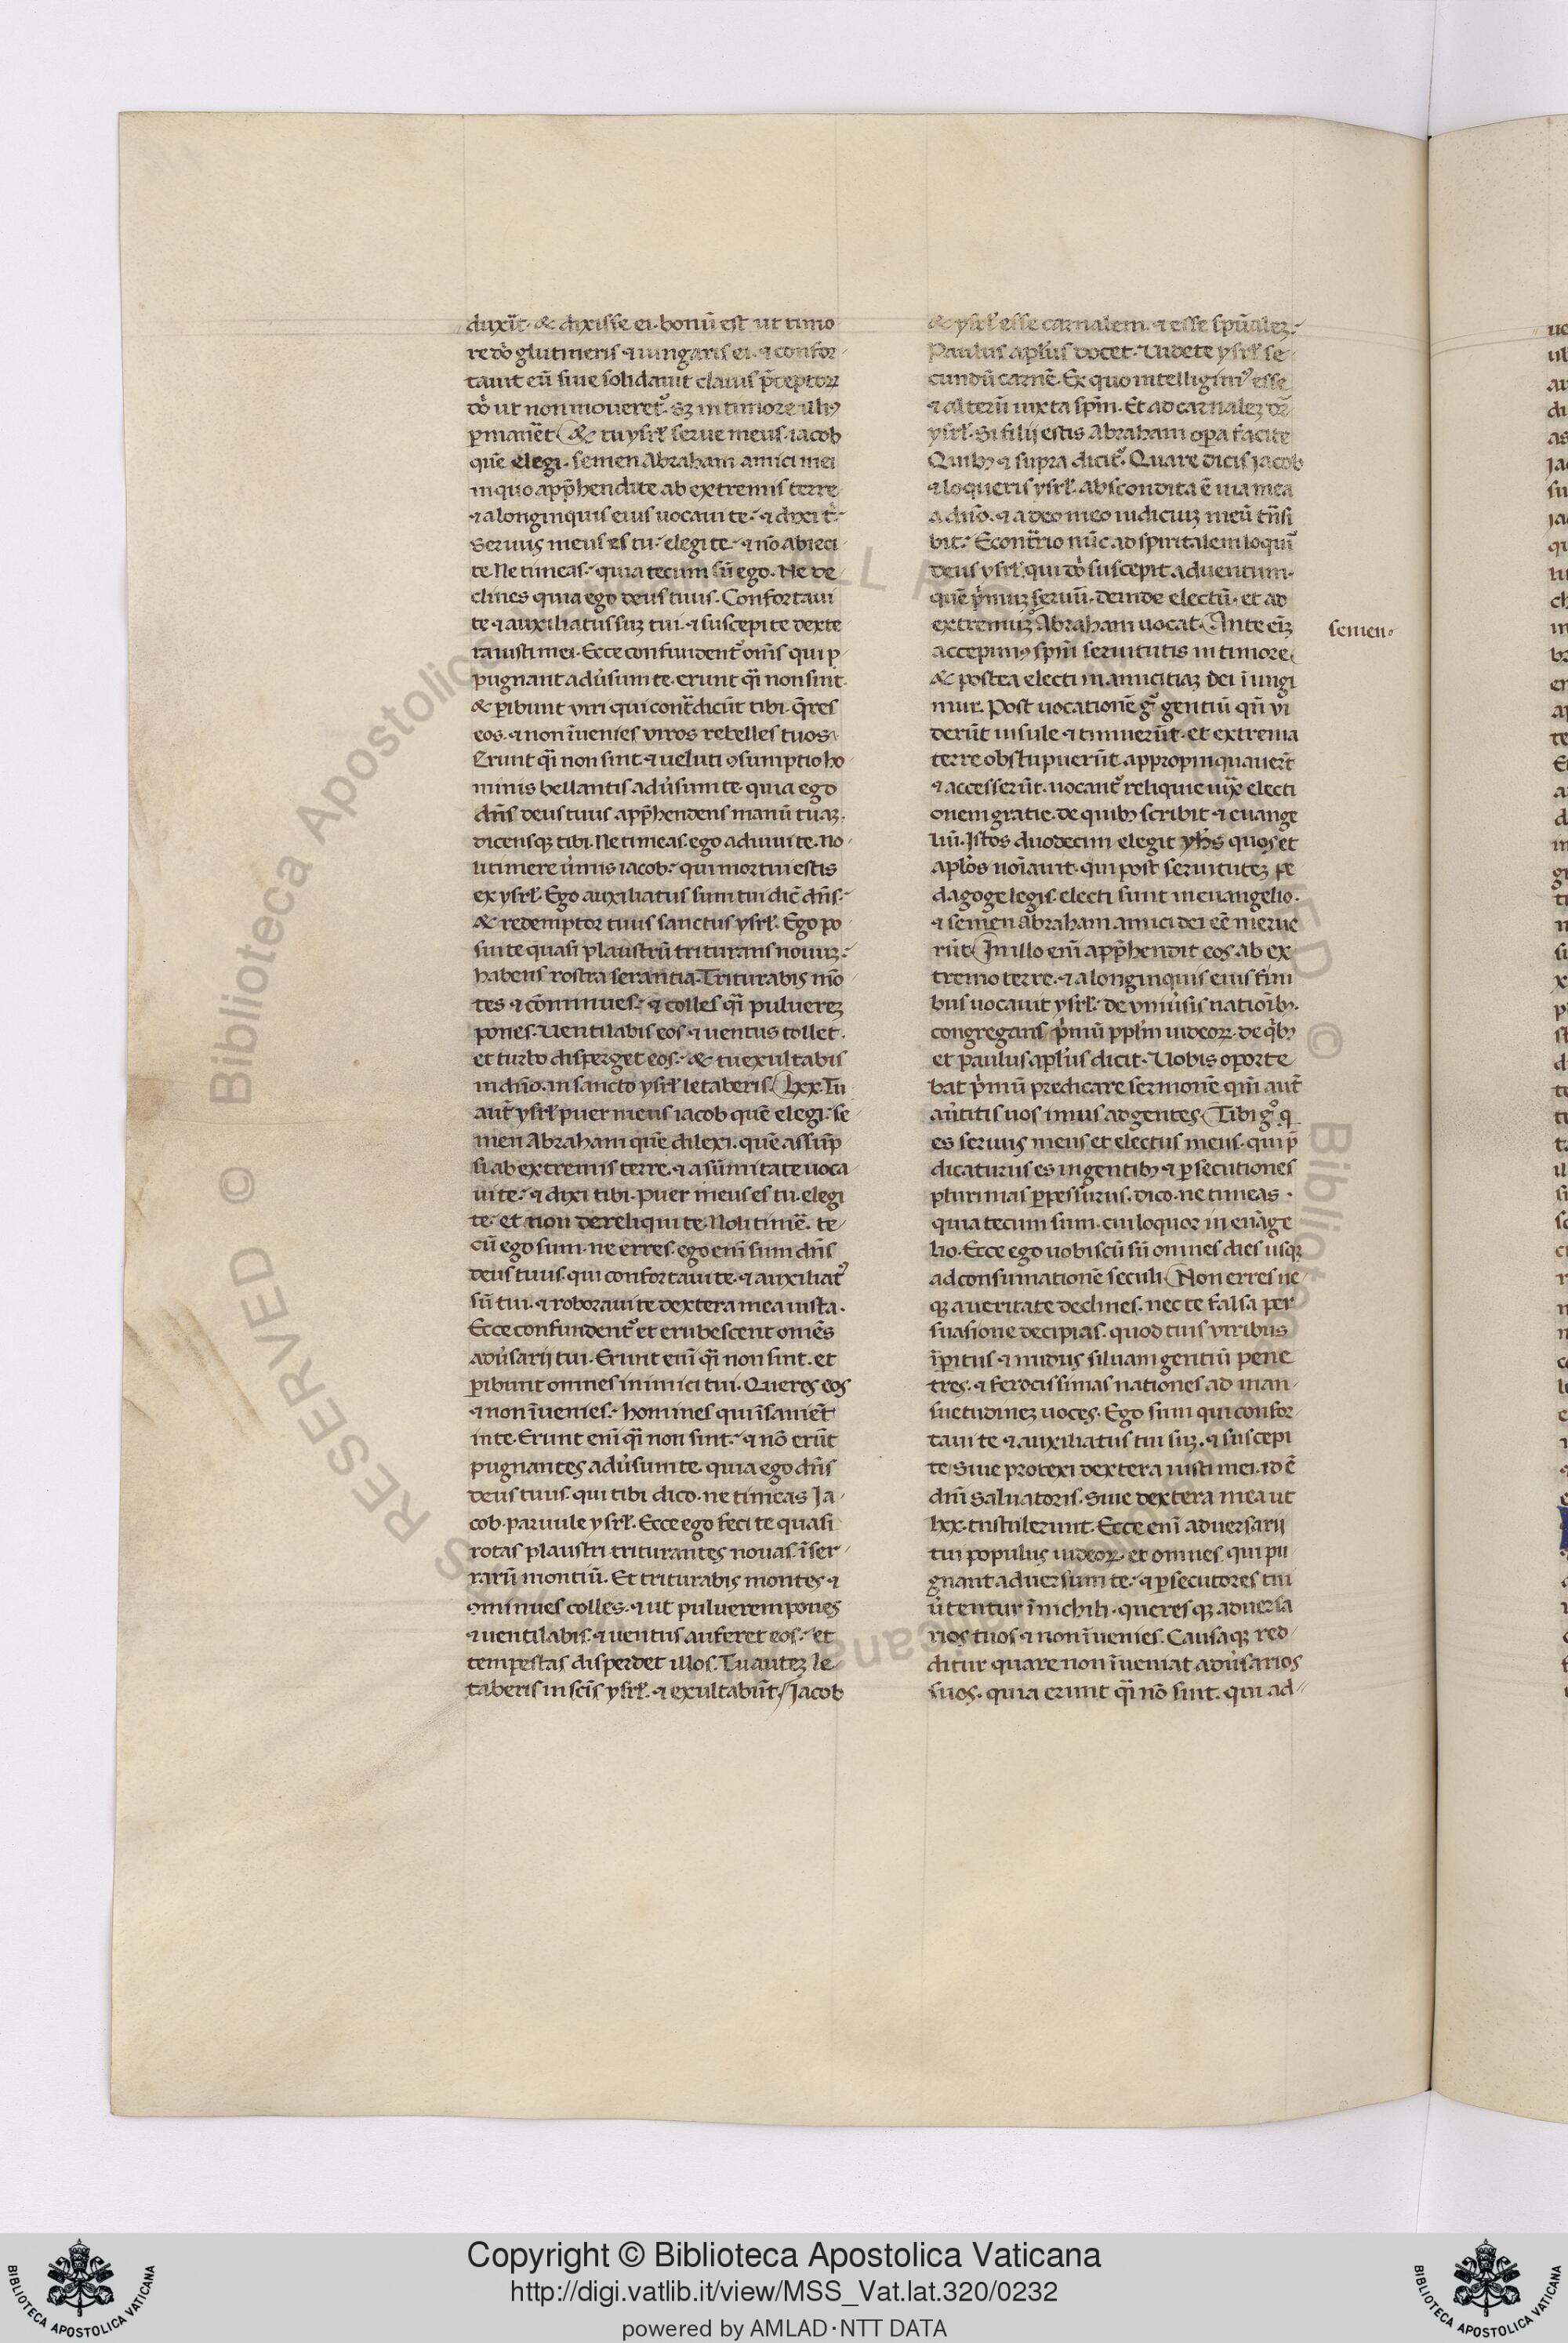 duxit̄· & dixisse ei· bonū est ut timo
re dō glutineris ⁊ iungaris ei· ⁊ confor
tauit eū siue solidauit clauis p̄ceptoꝝ
dī ut non moueret᷑· sꝫ in timore illiꝰ
ꝑmanēt & tu ysrl̄ serue meus· iacob
quē elegi· semen Abraham amici mei
in quo app̄hendi te ab extremis terre
⁊ a longinquis eius uocaui te· ⁊ dixi t·
Seruus meus es tu· elegi te· ⁊ nō abieci
te Ne timeas· quia tecum sū ego· Ne de
clines quia ego deus tuus· Confortaui
te ⁊ auxiliatus suꝫ tui· ⁊ suscepi te dexte
ra iusti mei· Ecce confundent᷑ om̄s qui p
pugnant adu̓sum te· erunt q̄i non sint·
& ꝑibunt viri qui cont̄dicūt tibi· q̄res
eos· ⁊ non īuenies viros rebelles tuos·
Erunt q̄i non sint· ⁊ ueluti ꝯsumptio ho
minis bellantis adu̓sum te· quia ego
dn̄s deus tuus app̄hendens manū tuaꝫ·
dicensqꝫ tibi· Ne timeas· ego adiuui te· No
li timere u̓mis iacob· qui mortui estis
ex ysrl̄· Ego auxiliatus sum tui dic̄ dn̄s·
& redemptor tuus sanctus ysrl̄· Ego po
sui te quasi plaustrū triturans nouuꝫ·
habens rostra serantia· Triturabis mō
tes ⁊ cōminues· ⁊ colles q̄i puluereꝫ
pones· Uentilabis eos ⁊ uentus tollet·
et turbo disperget eos· & tu exultabis
in dn̄o· in sancto ysrl̄ letaberis· Lxx· Tu
aut̄ ysrl̄ puer meus iacob quē elegi· se
men Abraham quē dilexi· quē assūp
si ab extremis terre· ⁊ a sūmitate uoca
ui te· ⁊ dixi tibi· puer meus es tu· elegi
te· et non dereliqui te· Noli timē· te
cū ego sum· ne erres· ego enī sum dn̄s
deus tuus· qui confortaui te· ⁊ auxiliatꝰ
sū tui· ⁊ roboraui te dextera mea iusta·
Ecce confundent᷑ et erubescent omēs
adu̓sarij tui· Erunt enī q̄i non sint· et
ꝑibunt omnes inimici tui· Queres eos
⁊ non īuenies· homines qui īsaniēt
in te· Erunt enī q̄i non sint· ⁊ nō erūt
pugnantes adu̓sum te· quia ego dn̄s
deus tuus· qui tibi dico· ne timeas Ja
cob· paruule ysrl̄· Ecce ego feci te quasi
rotas plaustri triturantes nouas· ī ser
rarū montiū· Et triturabis montes· ⁊
ꝯminues colles· ⁊ ut puluerem pones
⁊ uentilabis· ⁊ uentus auferet eos· et
tempestas disperdet illos· Tu auteꝫ le
taberis in scīs ysrl̄· ⁊ exultabūt· Jacob
& ysrl̄ esse carnalem· ⁊ esse spūaleꝫ·
Paulus apl̄us docet· Uidete ysrl̄ se
cundū carnē· Ex quo intelligimꝰ esse
⁊ alterū iuxta spm̄· Et ad carnaleꝫ dr̄
ysrl̄· Si filij estis Abraham opa facite
Quibꝫ ⁊ supra dicit᷑· Quare dicis jacob
⁊ loqueris ysrl̄· abscondita ē uia mea
a dn̄o· ⁊ a deo meo iudiciuꝫ meū tn̄si
bit· Econtr̄io nūc ad spiritalem loquit᷑
deus ysrl̄· qui dī suscepit aduentum·
quē p̓muꝫ seruū· deinde electū· et ad
extremuꝫ Abraham uocat· Ante eīꝫ
accepimꝰ spm̄ seruitutis in timore
& postea electi in amicitiaꝫ dei iūngi
mur· Post uocationē gͦ gentiū qn̄ vi
derūt insule ⁊ timuerūt· et extrema
terre obstupuerūt appropinquauerт̄
⁊ accesserūt· uocant᷑ reliquie iux̄ electi
onem gratie· de quibꝫ scribit᷑ ⁊ euange
liū· Istos duodecim elegit yhs̄ quos et
aplōs noīauit· qui post seruituteꝫ pe
dagoge legis· electi sunt in euangelio·
⁊ semen abraham amici dei eē merue
rūt· In illo enī app̄hendit eos ab ex
tremo terre· ⁊ a longinquis eius fīni
bus uocauit ysrl̄· de vniu̓sis natiōībꝫ·
congregans p̓mū ppl̄m iudeoꝝ· de q̓bꝫ
et paulus apl̄us dicit· Uobis oporte
bat p̓mū predicare sermonē qm̄ aut̄
au̓titis uos imus ad gentes· Tibi gͦ q
es seruus meus et electus meus· qui p̄
dicaturus es in gentibꝫ ⁊ ꝑsecutiones
plurimas ꝑpessurus· dico· ne timeas·
quia tecum sum· cui loquor in euāge
lio· Ecce ego uobiscū sū omnes dies usqꝫ
ad consumationē seculi· Non erres ne
qꝫ a ueritate declines· nec te falsa per
suasione decipias· quod tuis viribus
īꝑitus ⁊ nudus siluam gentiū pene
tres· ⁊ ferocissimas nationes ad man
suetudineꝫ uoces· Ego sum qui confor
taui te ⁊ auxiliatus tui suꝫ· ⁊ suscepi
te Siue protexi dextera iusti mei· id ē
dn̄i Saluatoris· Siue dextera mea ut
lxx· tn̄stulerunt· Ecce enī aduersarij
tui populus iudeoꝝ· et omnes qui pu
gnant aduersum te· ⁊ ꝑsecutores tui
u̓tentur ī nichili· queresqꝫ aduersa
rios tuos ⁊ non īuenies· Causaqꝫ red
ditur quare non īueniat adu̓sarios
suos· quia erunt q̄i nō sint· qui ad
semen
Copyright © Biblioteca Apostolica Vaticana
http://digi.vatlib.it/view/MSS_Vat.lat.320/0232
powered by AMLAD·NTT DATA
BIBLIOTECA APOSTOLICA VATICANA
BIBLIOTECA APOSTOLICA VATICANA